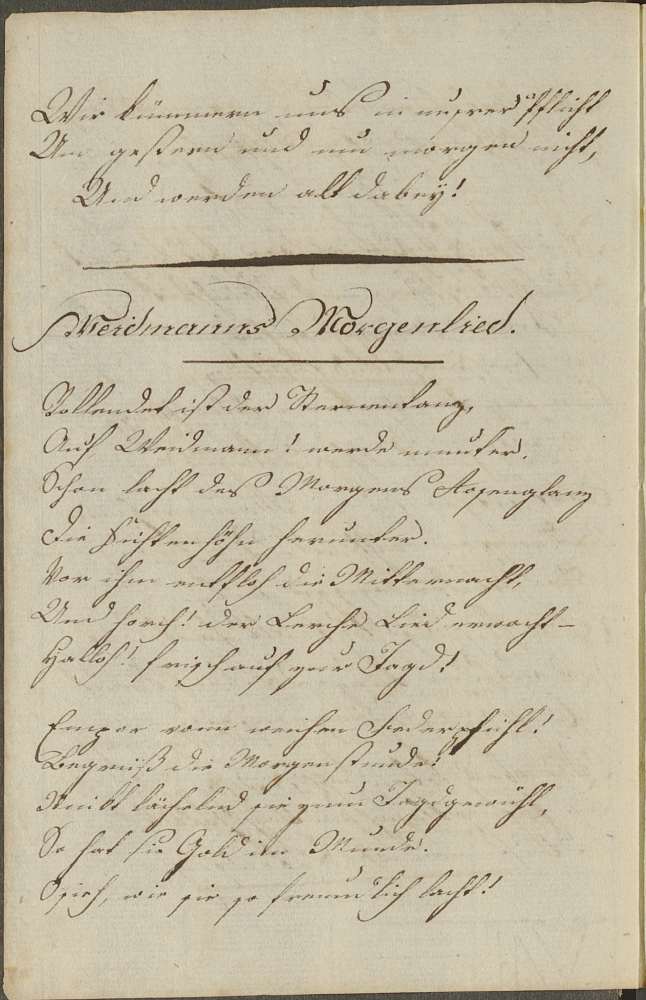 Wir kümmern uns in unsrer Pflicht
Um gestern und um morgen nicht,
Und werden alt dabey!
Weidmanns Morgenlied.
Vollendet ist der Sternentanz,
Auf, Weidmann! werde munter.
Schon lacht des Morgens Rosenglanz
Die Fichtenhöhn herunter.
Vor ihm entfloh die Mitternacht,
Und horch! der Lerche Lied erwacht –
Halloh! frisch auf zur Jagd!
Empor vom weichen Federpfühl!
Begrüß die Morgenstunde!
Winkt lächelnd sie zum Jagdgewühl,
So hat sie Gold im Munde.
O sieh, wie sie so freundlich lacht!